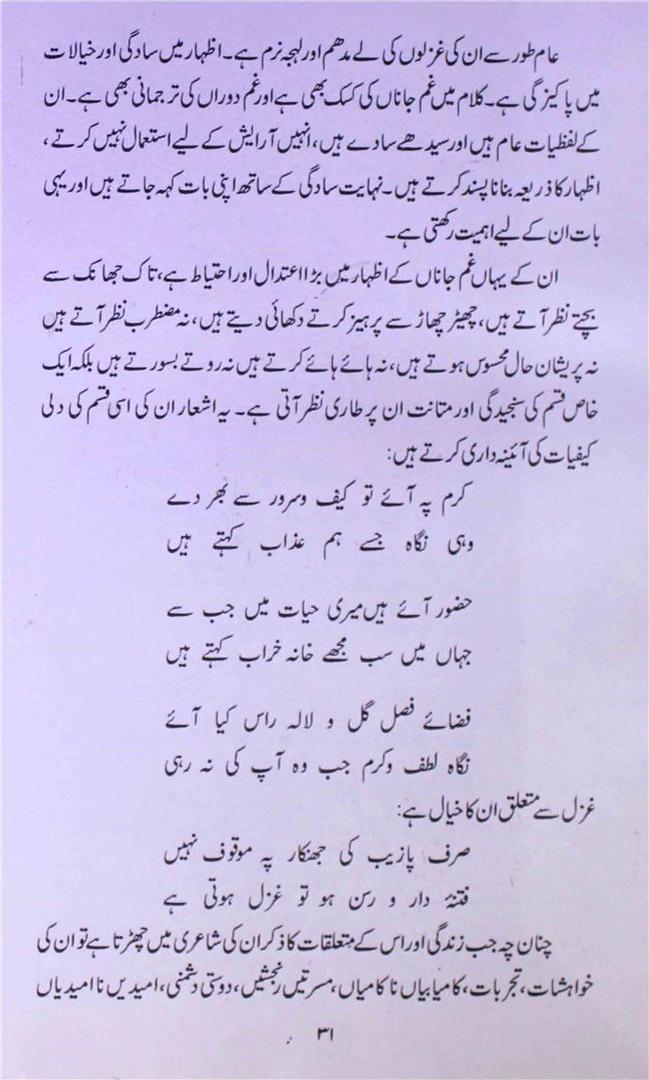 عام طور سے ان کی غزلوں کی لے مدھم اور لہجہ نرم ہے۔ اظہار میں سادگی اور خیالات
میں پاکیزگی ہے۔ کلام میں غم جاناں کی کسک بھی ہے اور غم دوراں کی ترجمانی بھی ہے۔ ان
کے لفظیات عام ہیں اور سیدھے سادے ہیں، انہیں آرایش کے لیے استعمال نہیں کرتے،
اظہار کا ذریعہ بنانا پسند کرتے ہیں۔ نہایت سادگی کے ساتھ اپنی بات کہہ جاتے ہیں اور یہی
بات ان کے لیے اہمیت رکھتی ہے۔
ان کے یہاں غم جاناں کے اظہار میں بڑا اعتدال اور احتیاط ہے، تاک جھانک سے
بچتے نظر آتے ہیں، چھیڑ چھاڑ سے پرہیز کرتے دکھائی دیتے ہیں، نہ مضطرب نظر آتے ہیں
نہ پریشان حال محسوس ہوتے ہیں، نہ ہائے ہائے کرتے ہیں نہ روتے بسورتے ہیں بلکہ ایک
خاص قسم کی سنجیدگی اور متانت ان پر طاری نظر آتی ہے۔ یہ اشعار ان کی اسی قسم کی دلی
کیفیات کی آئینہ داری کرتے ہیں:
کرم پہ آئے تو کیف وسرور سے بھر دے
وہی نگاہ جسے ہم عذاب کہتے ہیں
حضور آئے ہیں میری حیات میں جب سے
جہاں میں سب مجھے خانہ خراب کہتے ہیں
فضائے فصل گل و لالہ راس کیا آئے
نگاہ لطف وکرم جب وہ آپ کی نہ رہی
غزل سے متعلق ان کا خیال ہے:
صرف پازیب کی جھنکار پہ موقوف نہیں
فتنۂ دار و رسن ہو تو غزل ہوتی ہے
چنان چہ جب زندگی اور اس کے متعلقات کا ذکر ان کی شاعری میں چھڑتا ہے تو ان کی
خواہشات، تجربات، کامیابیاں ناکامیاں، مسرتیں رنجشیں، دوستی دشمنی، امیدیں ناامیدیاں
۳۱